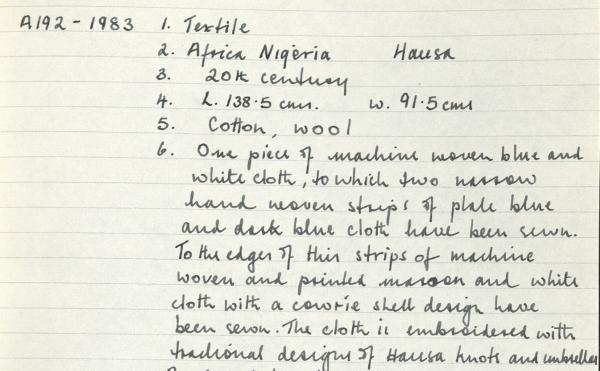 A192 - 1983 1. Textile
2. Africa Nigeria Hausa
3. 20th century
4. L. 138.5 cms. w. 91.5 cms
5. Cotton, wool
6. One piece of machine woven blue and
white cloth, to which two narrow
hand woven strips of plale blue
and dark blue cloth have been sewn.
To the edges of this strips of machine
woven and printed maroon and white
cloth with a cowrie shell design have
been sewn. The cloth is embroidered with
tradional designs of Hausa knots and umbrellas